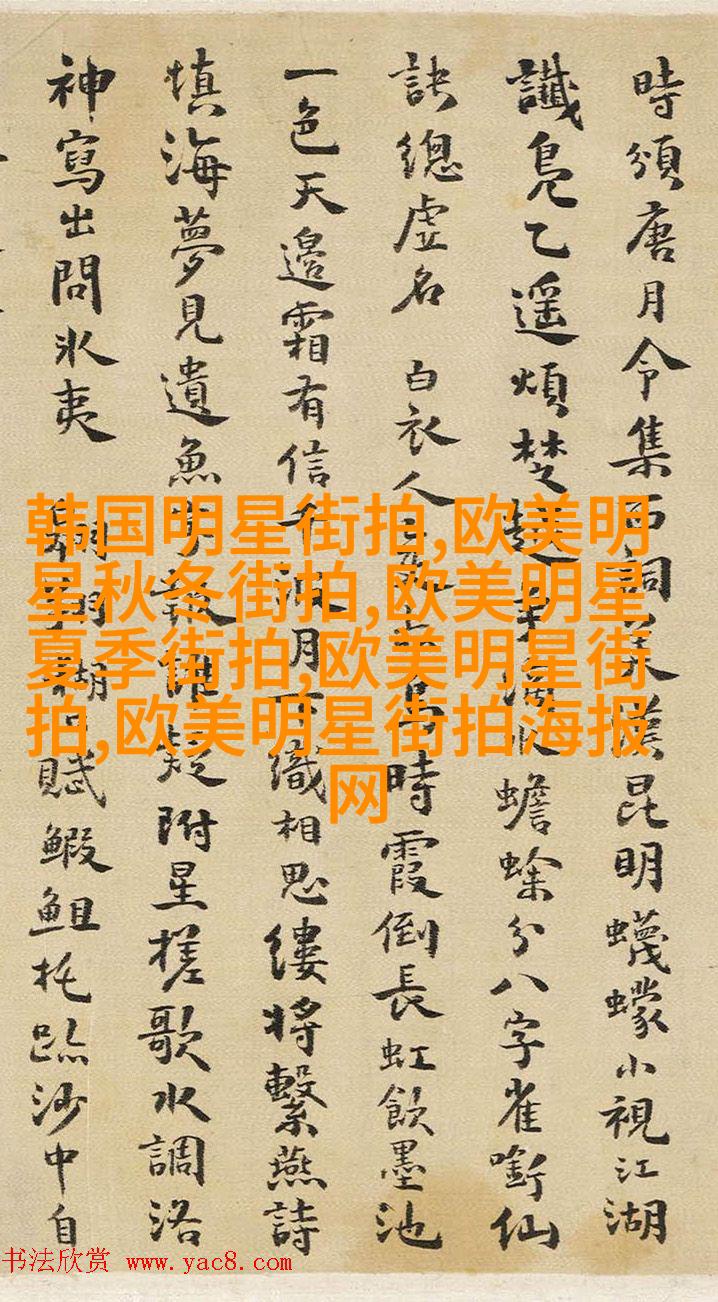 時頒唐月令集石詞美漢昆明蠛蠓小視江湖
讖鳧乙遥煩楚越蟾蜍分八字雀銜仙
訣總虚名 白衣人時霞倒長虹飲墨池
一色天邊霜有信千波月下織相思縷將繫燕詩
填海夢見遺魚報疑附星槎歌水調洛
神寫出問氷夷 湖賦鰕鮏托跡沙中自
韩国明星街拍,欧美明
星秋冬街拍,欧美明星
夏季街拍,欧美明星街
拍,欧美明星街拍海报
网
书法欣赏 www.yac8.com